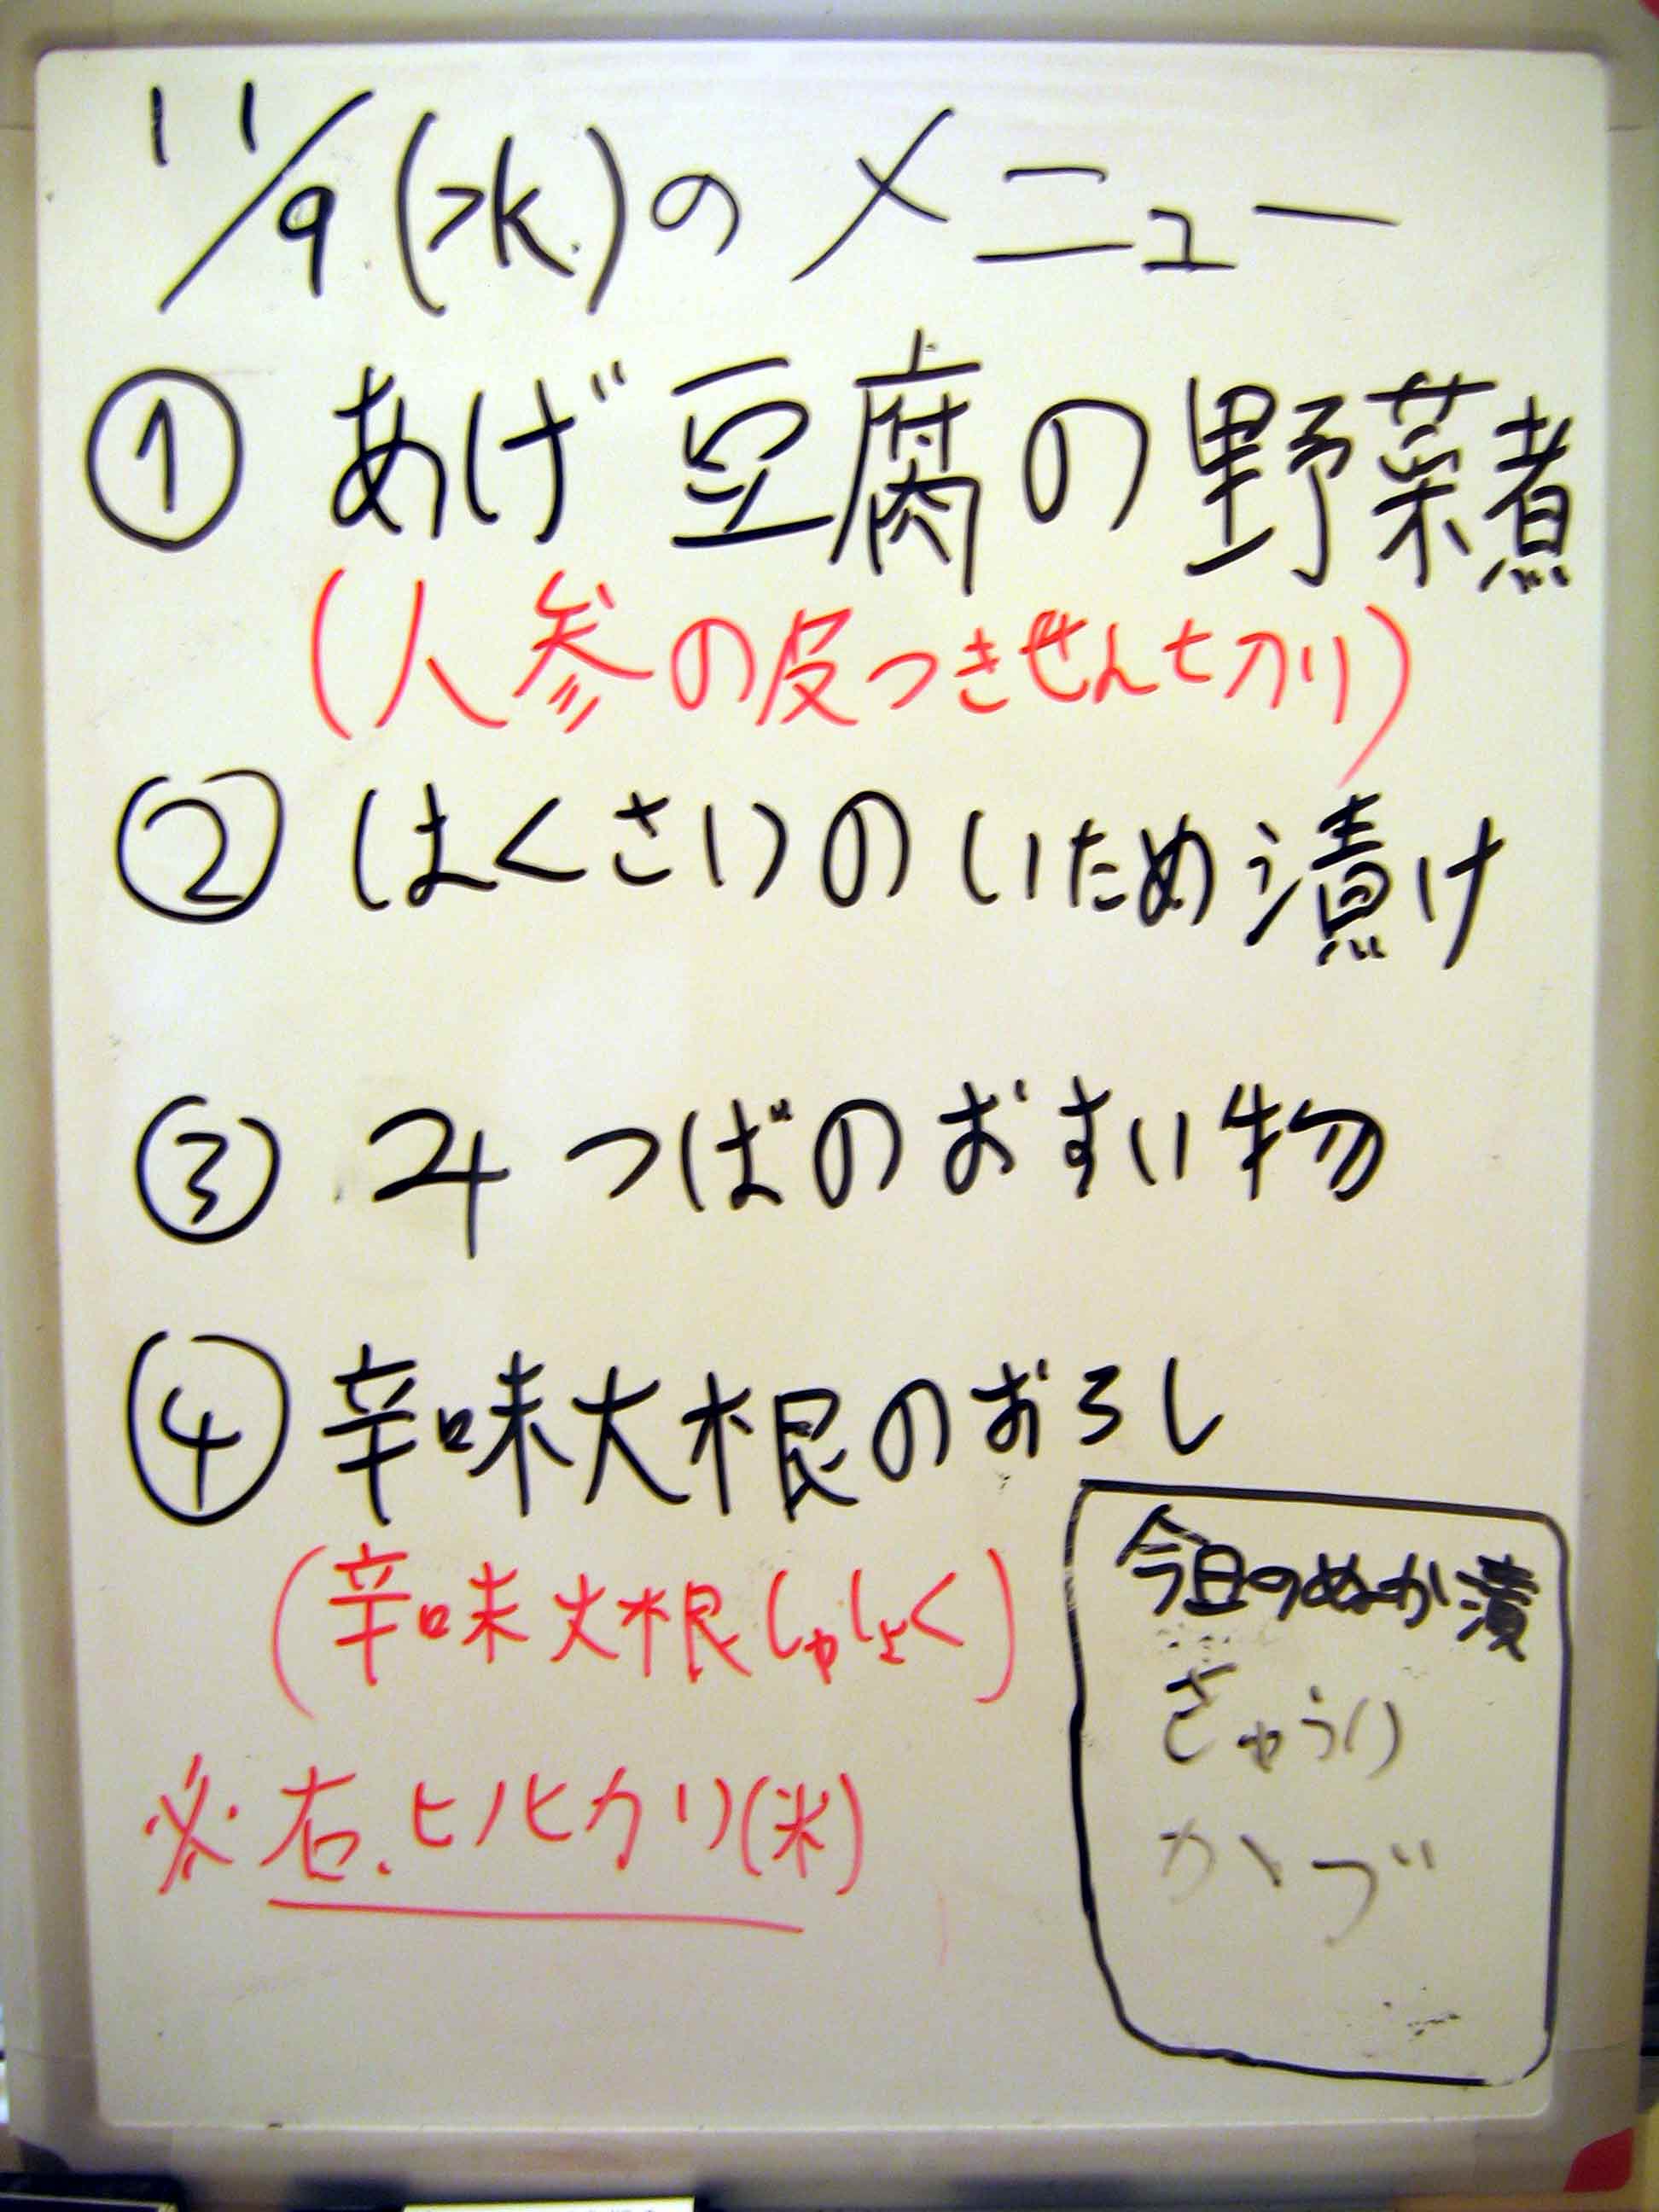 11/9(水)のメニュー
① あげ豆腐の野菜煮
(人参の皮つきせん切り)
② はくさいのいため漬け
③ みつばのおすい物
④ 辛味大根のおろし
(辛味大根しゅしょく)
※右.ヒノヒカリ(米)
今日のぬか漬
きゅうり
かブ